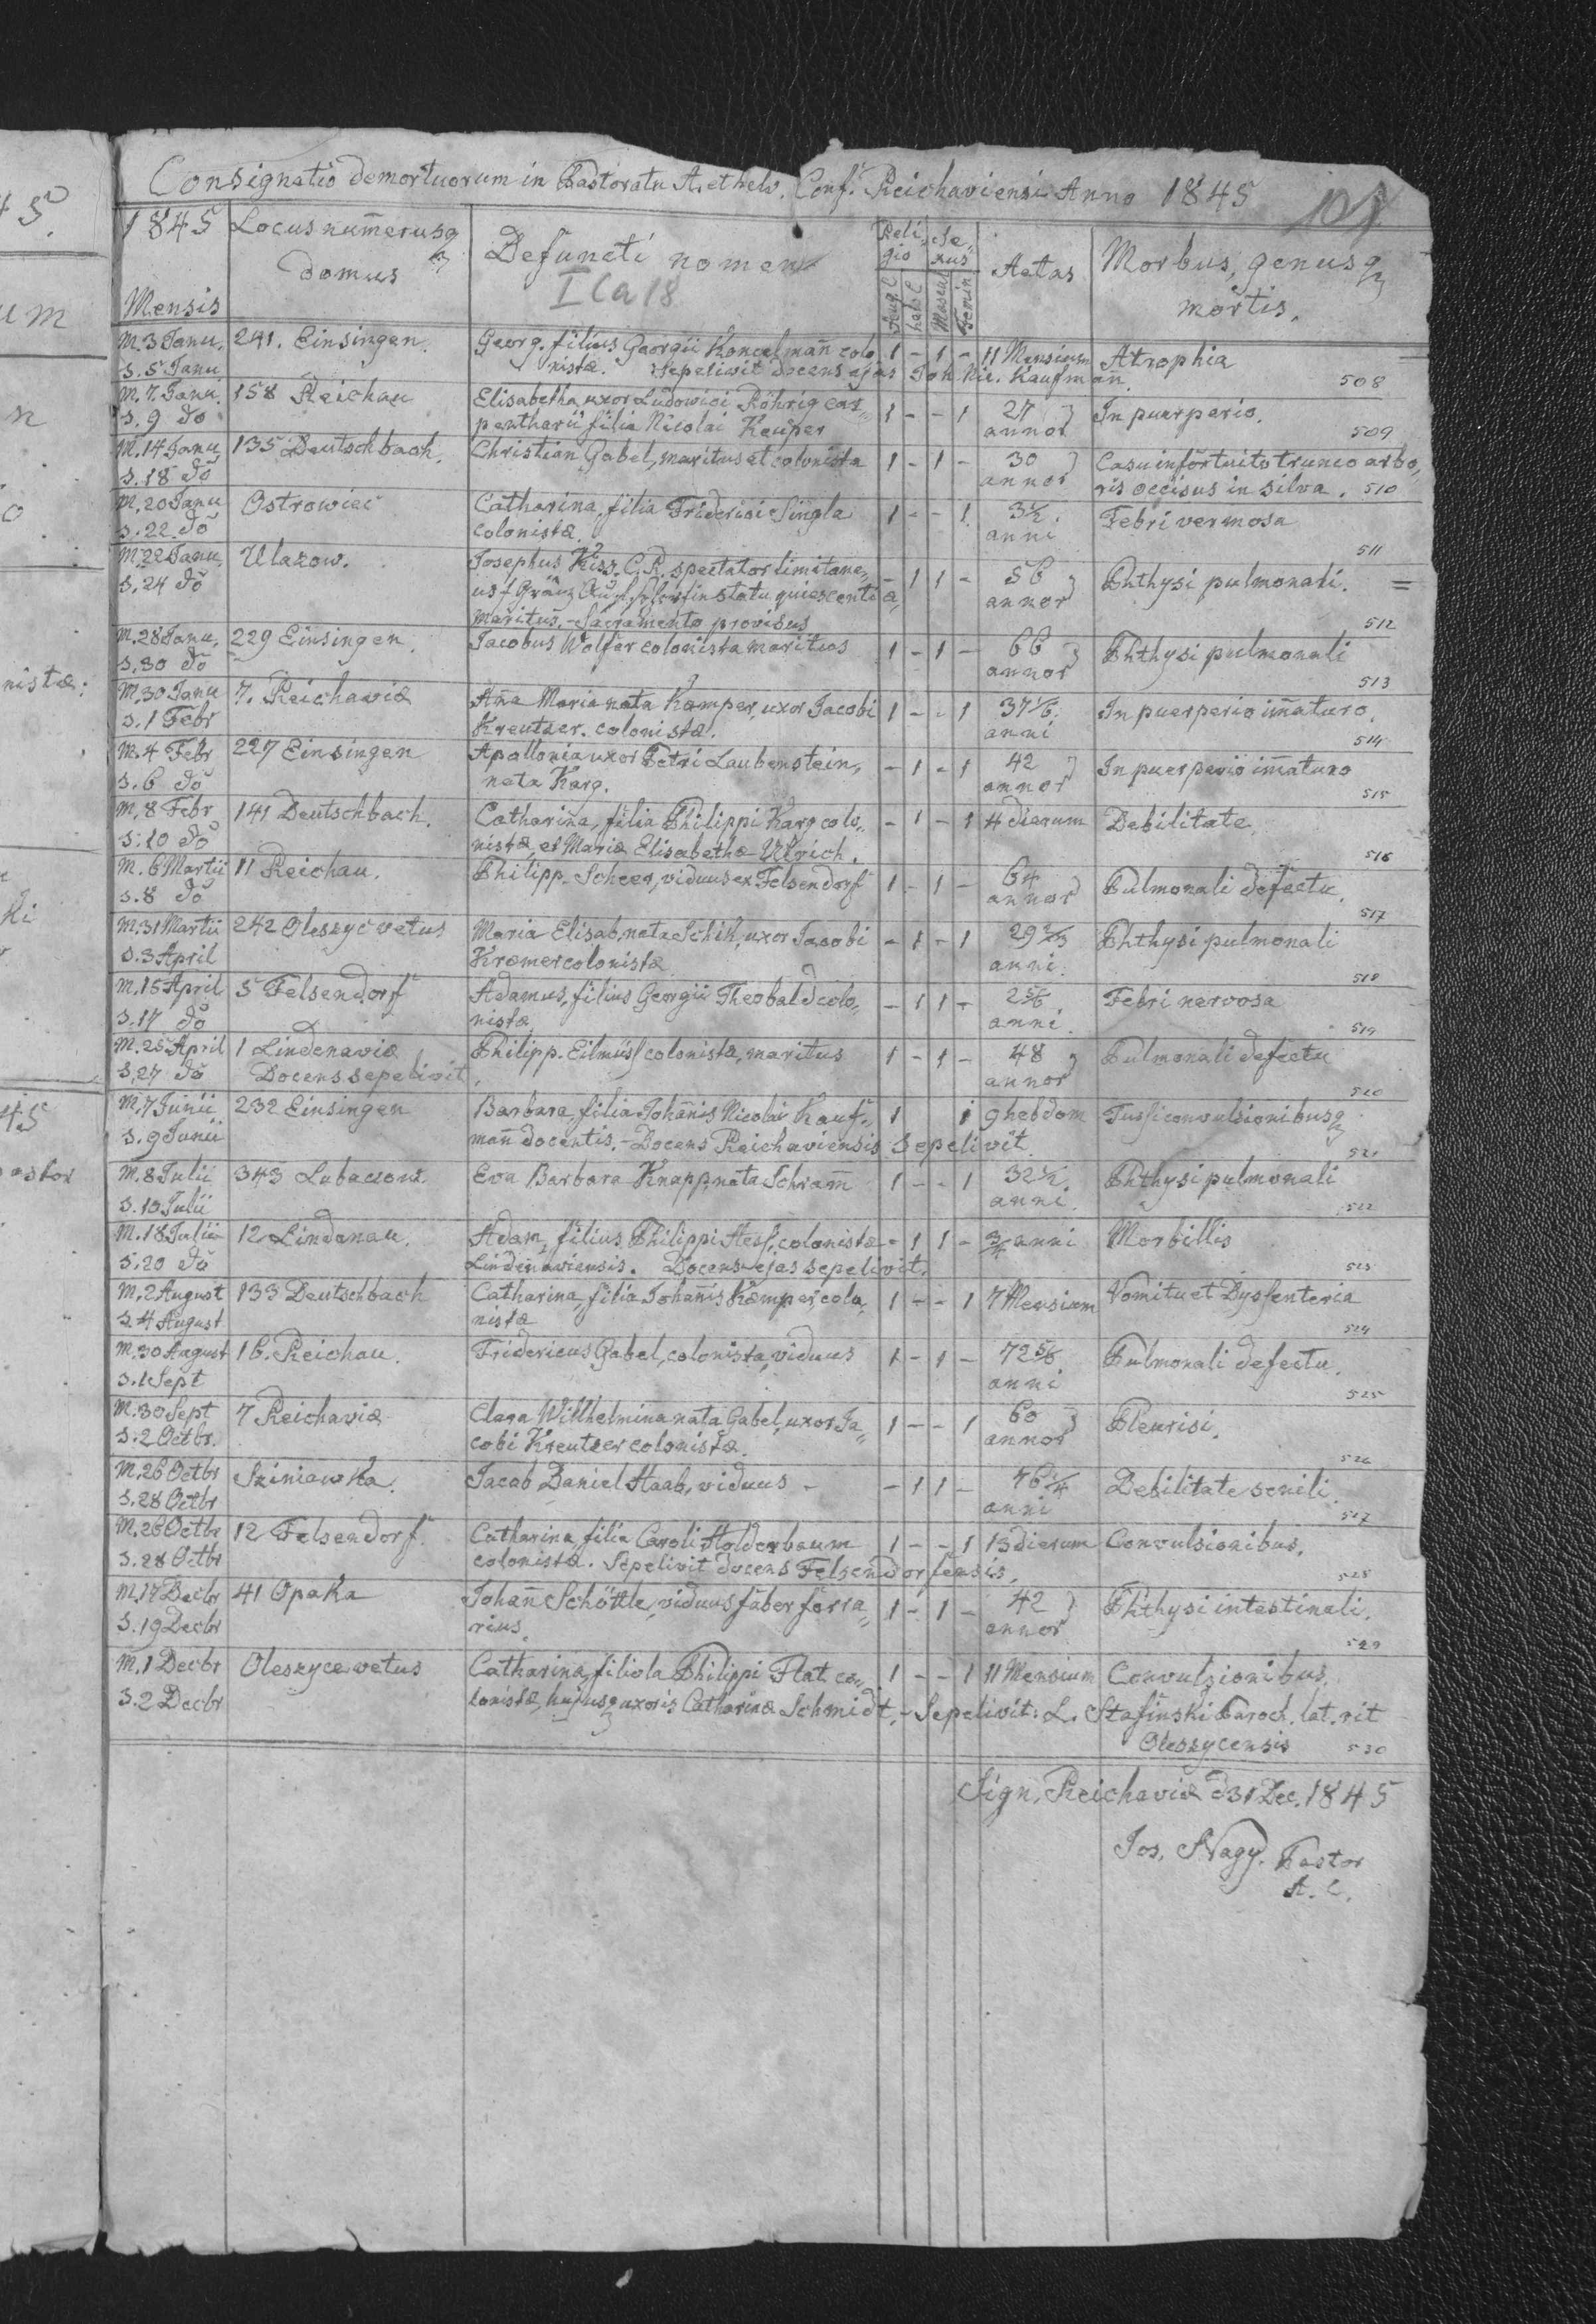 Consignatio demortuorum in Pastoratu A. et helv. Conf. Reichaviensi Anno 1845
1845 Mensis | Locus numerusq domus | Defuncti nomen | Religio Aug C helv C | Sexus Mascul Femin | Aetas | Morbus, genusq mortis.
I Ca 18
M. 3 Janu. 241. Einsingen. Georg. filius Georgii Koncelman̄ colo 1 - 1 - 11 Mensium Atrophia
S. 5 Janu nistæ. Sepelivit docens ejas Joh. Nic. Kaufman̄. 508
M. 7. Janu. 158 Reichau Elisabetha, uxor Ludowici Röhrig car„ 1 - - 1 27 In puerperio.
S. 9 do pentharii filia Nicolai Keuper annor 509
M. 14 Janu 135 Deutschbach. Christian Gabel, maritus et colonista 1 - 1 - 30 Casu infortuito trunco arbo„
S. 18 do annor ris occisus in silva. 510
M. 20 Janu Ostrowiec Catharina, filia Friderici Singla 1 - - 1 3½. Febri vermosa
S. 22. do colonistæ. anni 511
M. 22 Janu. Ulazow. Josephus Kisz. C. R. spectator limitane„ - 1 1 - 56 Phthysi pulmonali. =
S. 24 do in statu quiescentia, annor
maritus. - Sacramento provisus 512
M. 28 Janu. 229 Einsingen. Jacobus Wolfer colonista maritus 1 - 1 - 66 Phthysi pulmonali
S. 30 do annor 513
M. 30 Janu 7. Reichaviæ An̄a Maria nata Kæmper, uxor Jacobi 1 - - 1 37 1/6. In puerperio im̄aturo.
S. 1 Febr Kreutzer. colonistæ. anni 514
M. 4 Febr 227 Einsingen Apollonia uxor Petri Laubenstein, - 1 - 1 42 In puerperio im̄aturo
S. 6 do nata Karg. annor 515
M. 8 Febr 141 Deutschbach. Catharina, filia Philippi Karg colo„ - 1 - 1 4 dierum Debilitate.
S. 10 do nistæ, et Mariæ Elisabethæ Ulrich. 516
M. 6 Martii 11 Reichau. Philipp. Scheer, viduus ex Felsendorf 1 - 1 - 64 Pulmonali defectu.
S. 8 do annor 517
M. 31 Martii 242 Oleszyc vetus Maria Elisab, nata Schik, uxor Jacobi - 1 - 1 29 2/3 Phthysi pulmonali
S. 3 April Kræmer colonistæ anni. 518
M. 15 April 5 Felsendorf Adamus, filius Georgii Theobald colo„ - 1 1 - 2 5/6 Febri nervosa
S. 17 do nistæ anni. 519
M. 25 April 1 Lindenaviæ Philipp. Eilmüss colonistæ, maritus 1 - 1 - 48 Pulmonali defectu
S. 27 do Docens sepelivit. annor 520
M. 7 Junii 232 Einsingen Barbara, filia Johan̄is Nicolai Kauf„ 1 1 9 hebdom Tussi convulsionibusq
S. 9 Junii man̄ docentis. - Docens Reichaviensis sepelivit. 521
M. 8 Julii 343 Lubaczow. Eva Barbara Knapp, nata Schram̄ 1 - - 1 32 ½ Phthysi pulmonali
S. 10 Julii anni. 522
M. 18 Julii 12 Lindenau. Adam, filius Philippi Hess, colonistæ - 1 1 - 3/4 anni Morbillis
S. 20 do Lindenaviensis. Docens ejas sepelivit. 523
M. 2 August 133 Deutschbach Catharina, filia Johan̄is Kæmper colo„ 1 - - 1 7 Mensium Vomitu et Dyssenteria
S. 4 August nistæ 524
M. 30 August 16. Reichau. Fridericus Gabel, colonista, viduus 1 - 1 - 72 5/6 Pulmonali defectu.
S. 1 Sept anni 525
M. 30 Sept 7 Reichaviæ Clara Willhelmina nata Gabel, uxor Ja„ 1 - - 1 60 Pleurisi.
S. 2 Octbr. cobi Kreutzer colonistæ. annor 526
M. 26 Octbr Sziniawka. Jacob Daniel Haab, viduus - - 1 1 - 76 ¼ Debilitate senili
S. 28 Octbr anni 527
M. 26 Octbr 12 Felsendorf. Catharina filia Caroli Holderbaum 1 - - 1 13 dierum Convulsionibus.
S. 28 Octbr colonistæ. Sepelivit docens Felsendorfensis. 528
M. 17 Decbr 41 Opaka Johan̄ Schöttle, viduus faber ferra„ 1 - 1 - 42 Phthysi intestinali.
S. 19 Decbr rius. annor 529
M. 1 Decbr Oleszyce vetus Catharina, filiola Philippi Flat co„ 1 - - 1 11 Mensium Convulsionibus.
S. 2 Decbr lonistæ, hujusq uxoris Catharinæ Schmidt, - Sepelivit: L. Stafinski Paroch. lat. rit
Oleszycensis 530
Sign. Reichaviæ d 31 Dec. 1845
Jos. Nagy. Pastor
A. C.